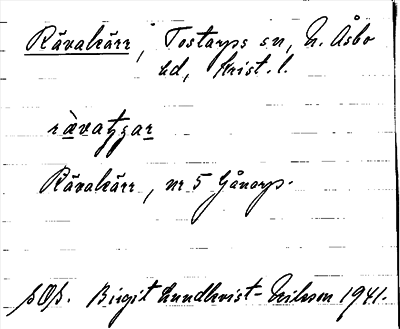 Rävakärr, Tostarps sn, N. Åsbo
hd, Krist. l.
Rävakärr, nr 5 Gånarp.
sOs. Birgit Lundkvist-Nilsson 1941.